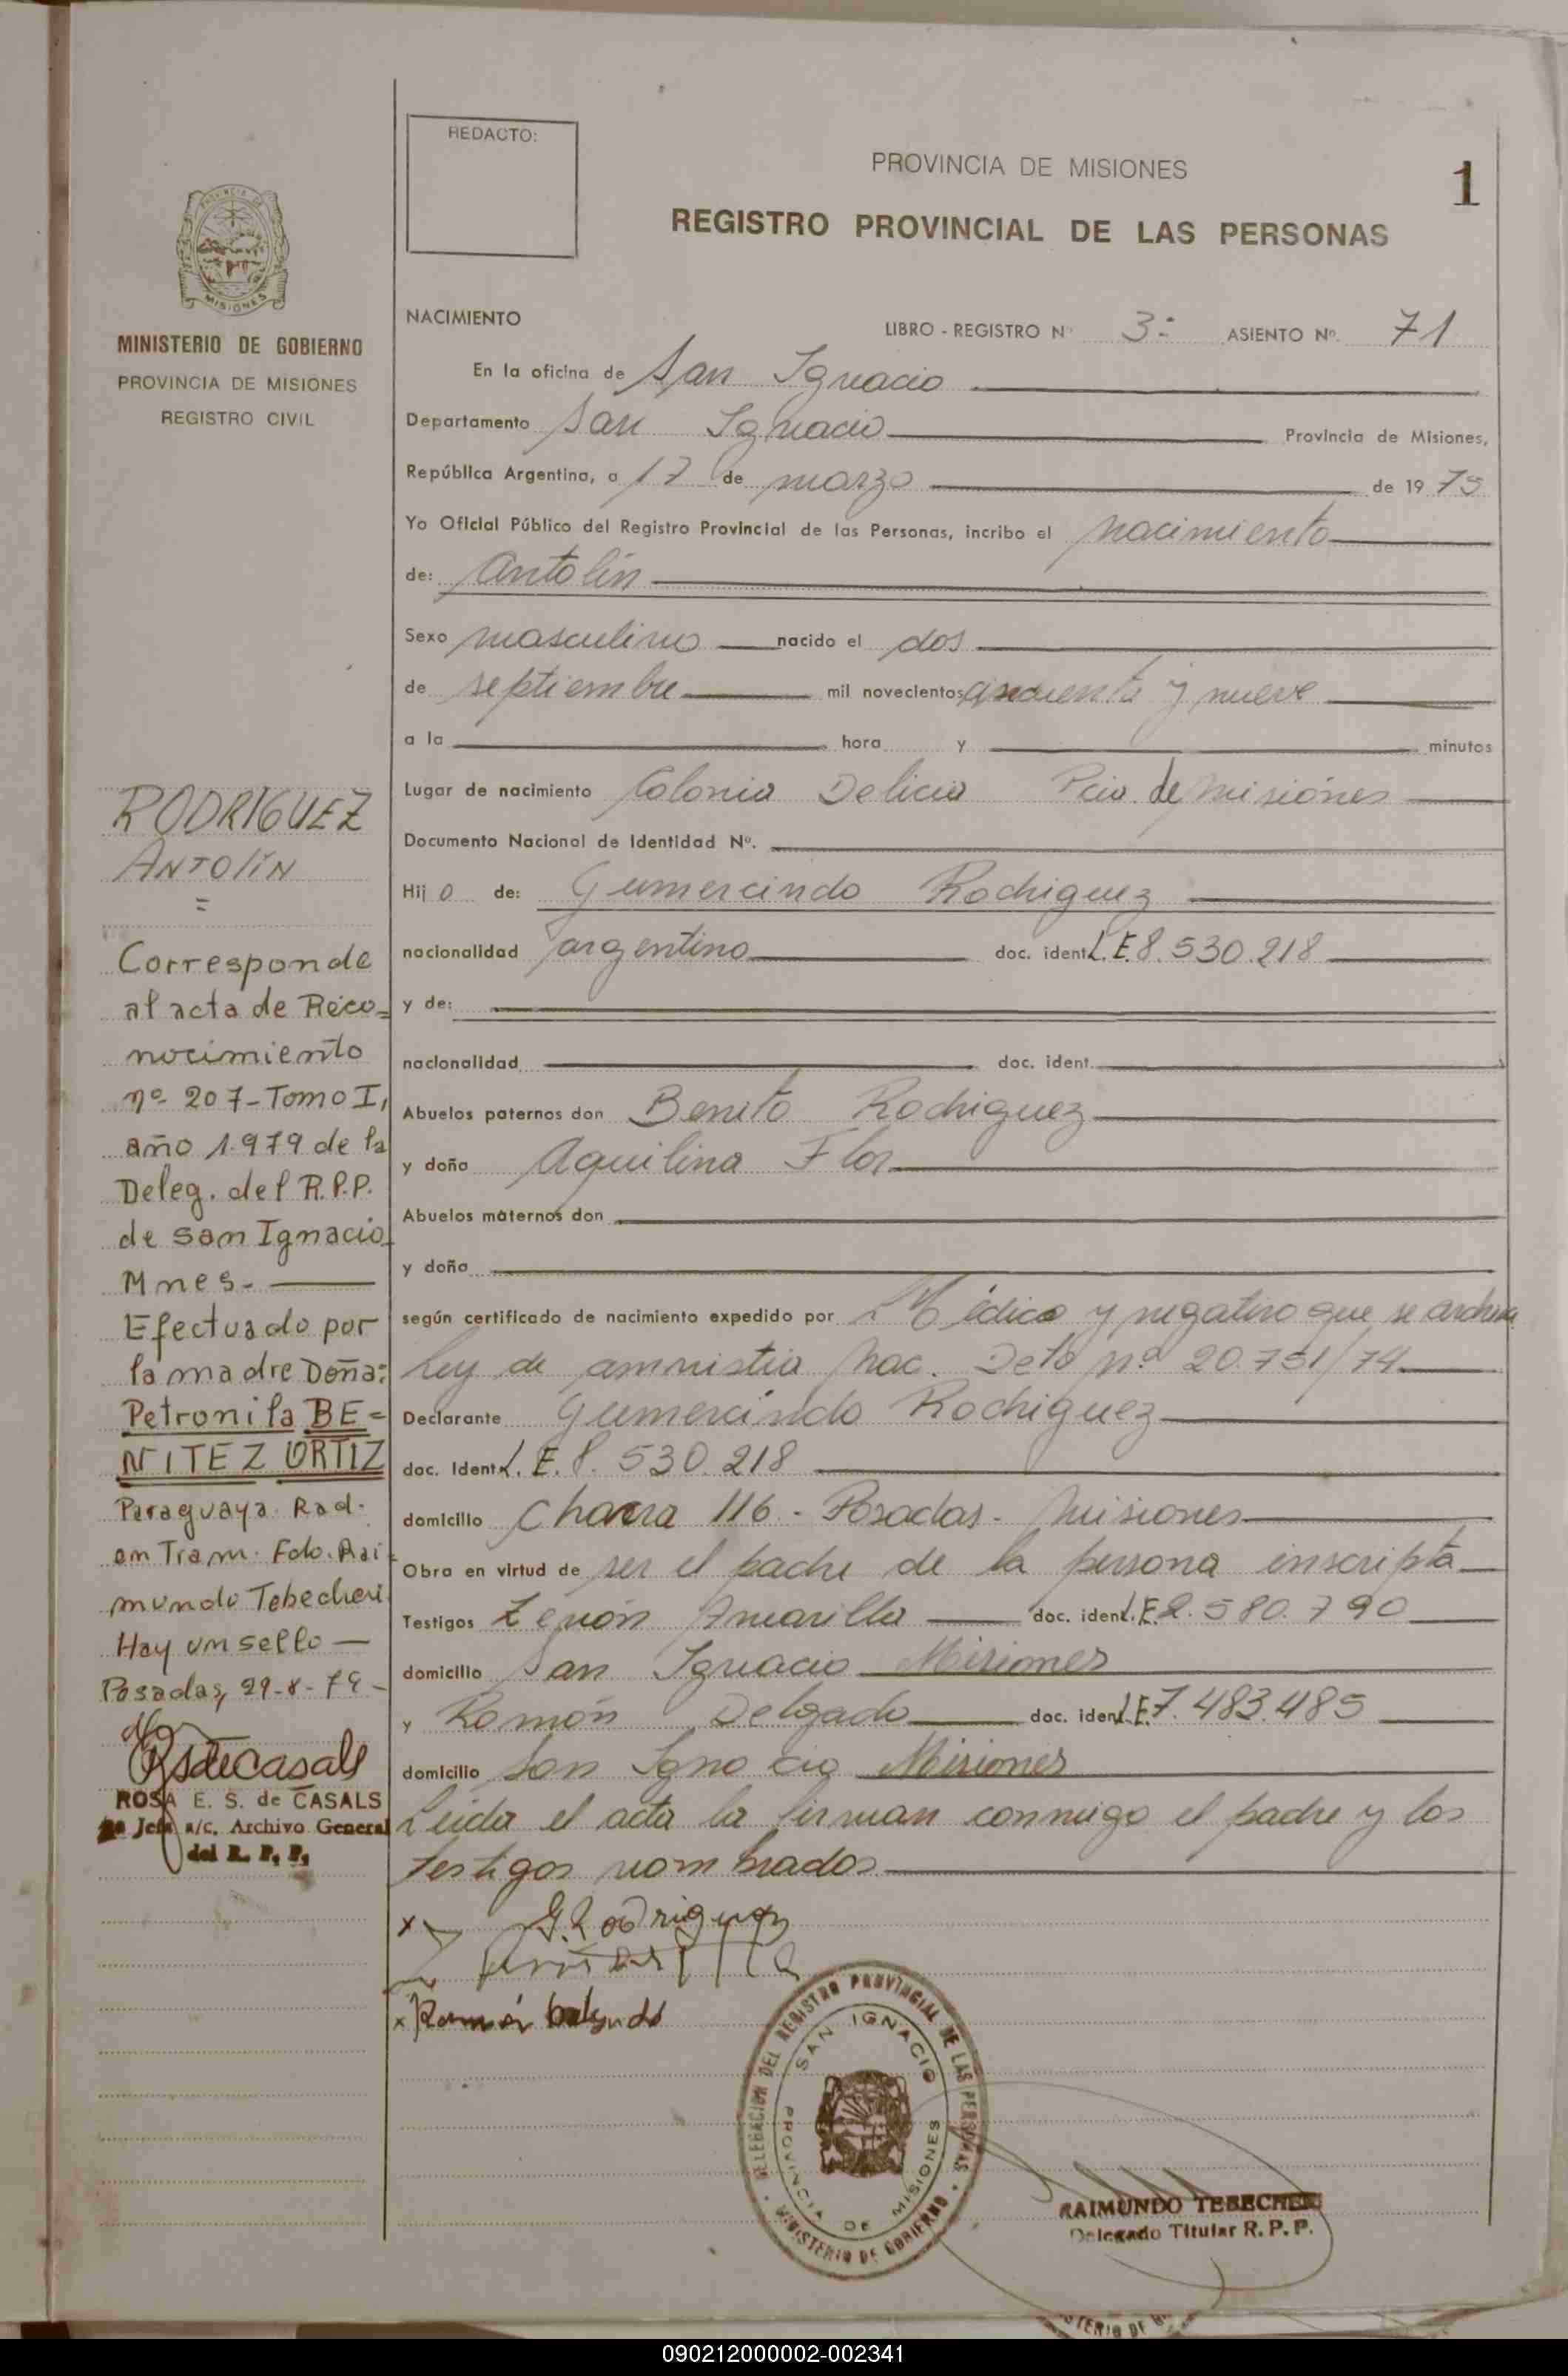 REDACTO:
PROVINCIA DE MISIONES
1
REGISTRO PROVINCIAL DE LAS PERSONAS
MISIONES
MINISTERIO DE GOBIERNO
PROVINCIA DE MISIONES
REGISTRO CIVIL
NACIMIENTO
LIBRO - REGISTRO Nº 3º ASIENTO Nº. 71
En la oficina de San Ignacio
Departamento San Ignacio Provincia de Misiones,
República Argentina, a 17 de marzo de 1975
Yo Oficial Público del Registro Provincial de las Personas, incribo el nacimiento
de: Antolín
Sexo masculino nacido el dos
de septiembre mil novecientos cincuenta y nueve
a la hora y minutos
Lugar de nacimiento Colonia Delicia Pcia. de Misiones
Documento Nacional de Identidad Nº.
Hijo de: Gumercindo Rodriguez
nacionalidad argentino doc. ident. L.E. 8.530.218
y de:
nacionalidad doc. ident.
Abuelos paternos don Benito Rodriguez
y doña Aquilina Flor
Abuelos maternos don
y doña
según certificado de nacimiento expedido por Médico y negativo que se archiva
Ley de amnistia Nac. Deto nº 20.751/74
Declarante Gumercindo Rodriguez
doc. Ident. L.E. 8.530.218
domicilio Chacra 116 - Posadas - Misiones
Obra en virtud de ser el padre de la persona inscripta
Testigos Zenón Amarilla doc. ident. L.E. 2.580.790
domicilio San Ignacio Misiones
y Ramón Delgado doc. ident. L.E. 7.483.485
domicilio San Ignacio Misiones
Leida el acta la firman conmigo el padre y los
testigos nombrados
x G. Rodriguez
x Ramón Delgado
RODRIGUEZ
ANTOlÍN
=
Corresponde
al acta de Reco=
nocimiento
nº 207-Tomo I,
año 1.979 de la
Deleg. del R.P.P.
de San Ignacio
Mnes.-
Efectuado por
la madre Doña:
Petronila BE=
NITEZ ORTIZ
Paraguaya. Rad.
en Tram. Fdo. Rai=
mundo Tebecheri.
Hay un sello
Posadas, 29-8-79-
ROSA E. S. de CASALS
Jefa a/c. Archivo General
del R. P. P.
DELEGACION DEL REGISTRO PROVINCIAL DE LAS PERSONAS
SAN IGNACIO
PROVINCIA DE MISIONES
MINISTERIO DE GOBIERNO
RAIMUNDO TEBECHERI
Delegado Titular R. P. P.
090212000002-002341